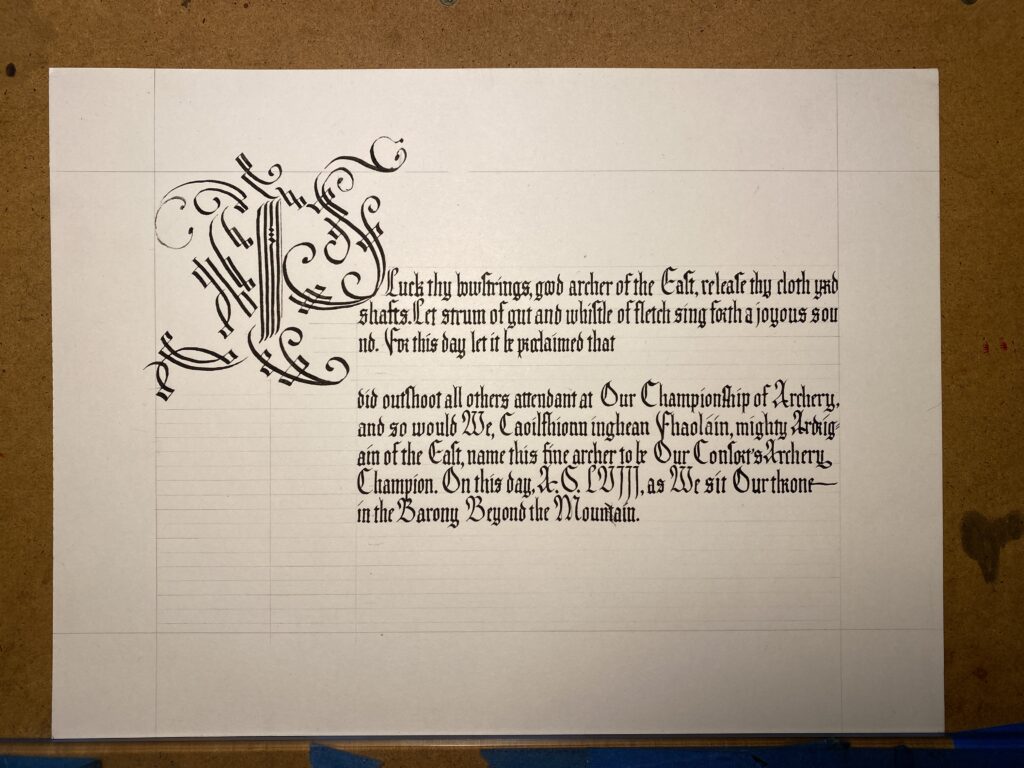 PLuck thy bowstrings, good archer of the East, release thy cloth yard
shafts. Let strum of gut and whistle of fletch sing forth a joyous sou
nd. For this day let it be proclaimed that
did outshoot all others attendant at Our Championship of Archery,
and so would We, Caoilfhionn inghean Fhaoláin, mighty Ardrig-
ain of the East, name this fine archer to be Our Consort's Archery
Champion. On this day, A.S. LVIII, as We sit Our throne
in the Barony Beyond the Mountain.